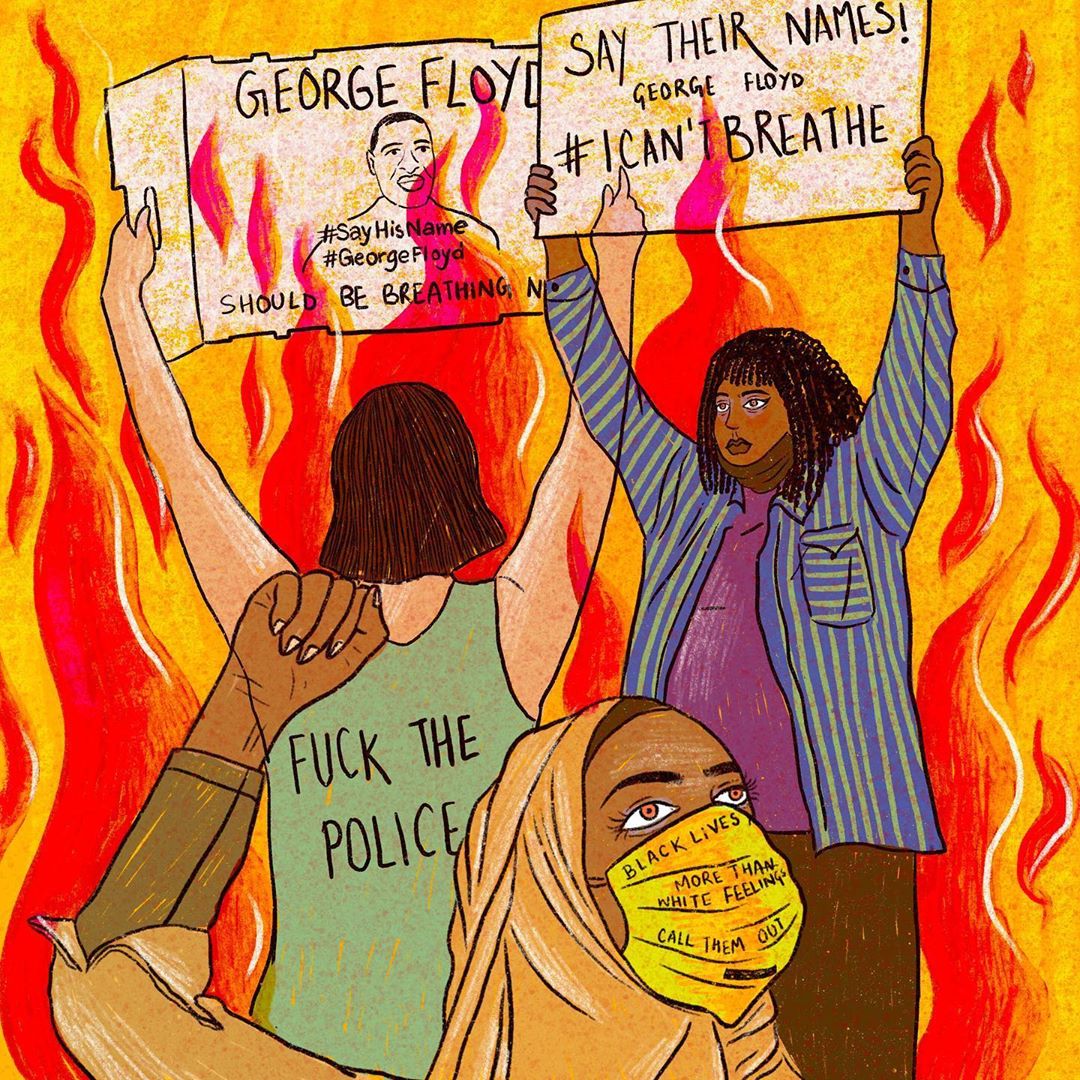 GEORGE FLOYD
#SayHisName
#GeorgeFloyd
SHOULD BE BREATHING,
SAY THEIR NAMES!
GEORGE FLOYD
#ICAN'T BREATHE
FUCK THE
POLICE
BLACK LIVES
MORE THAN
WHITE FEELINGS
CALL THEM OUT